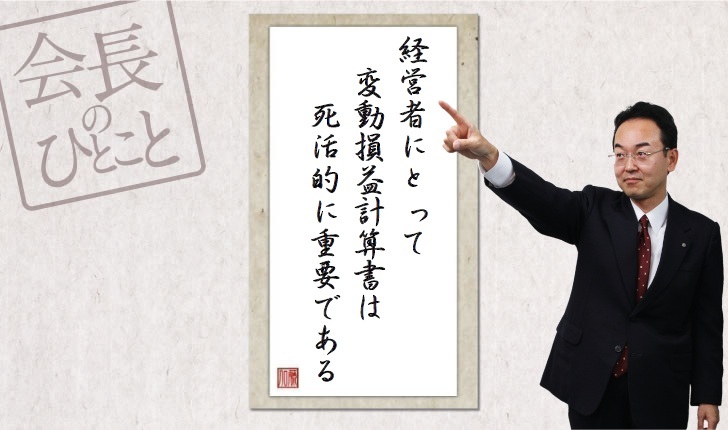 会長
の
ひとこと
経営者にとって
変動損益計算書は
死活的に重要である